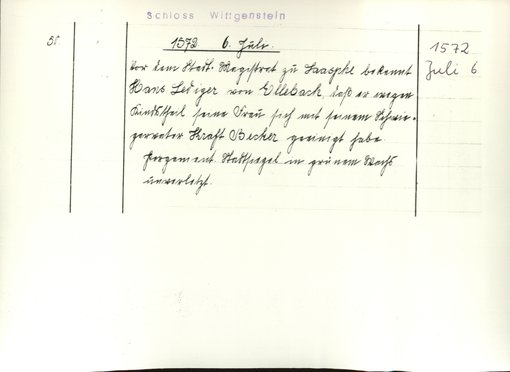 Schloss Wittgenstein
58.
1572. 6. Juli.
1572
Juli 6
Vor dem Stadt-Magistrat zu Laasphe bekennt
Hans Lediger von Ellebach, daß er wegen
Kindstheil seine Frau sich mit seinem Schwie-
gervater Kraft Becker geeinigt habe.
Pergament. Stadtsiegel in grünem Wachs
unverletzt.